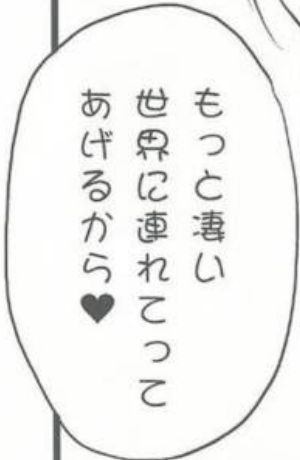 もっと凄い
世界に連れてって
あげるから♥